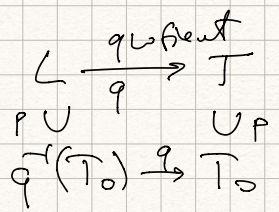 quotient
L → T
q
P ∪ ∪ P
q⁻¹(T₀) →^q T₀